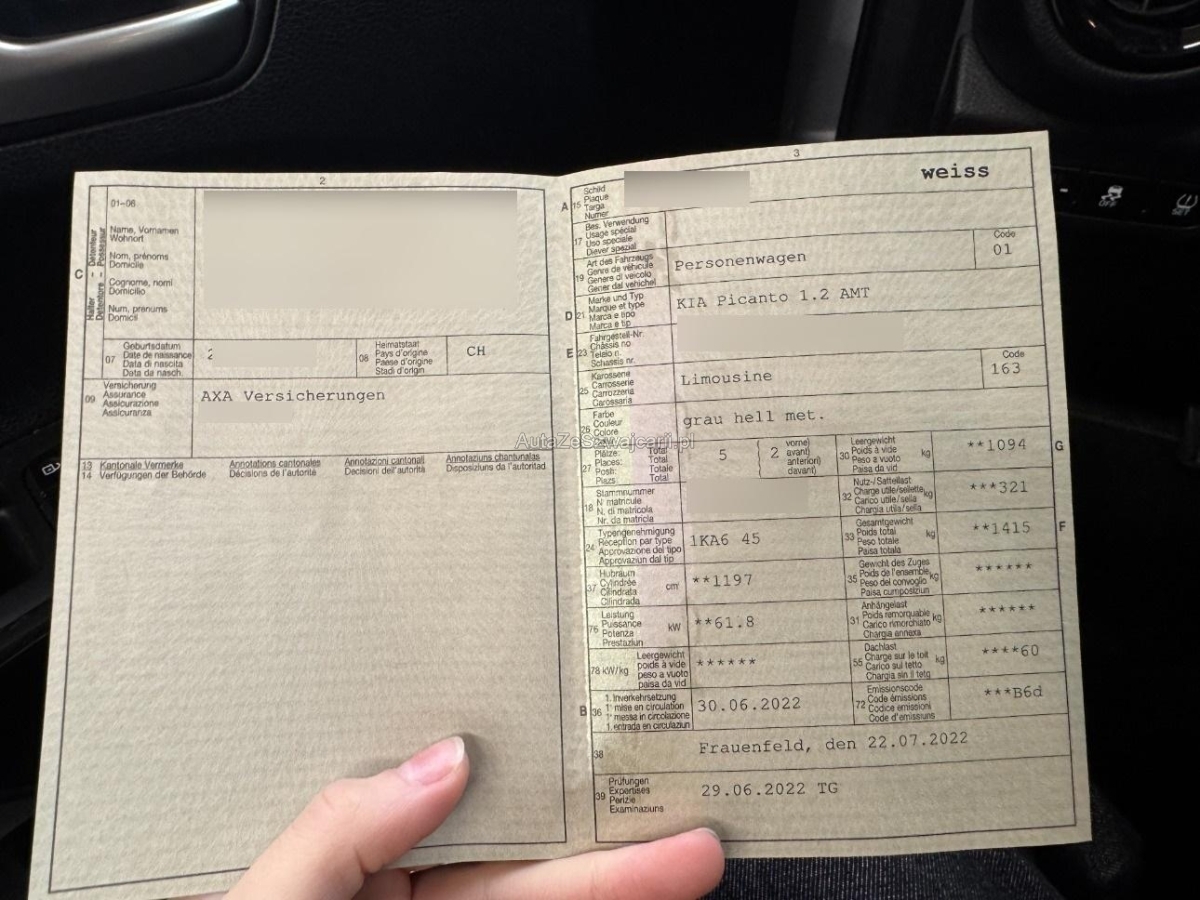 2
01-06
C
Halter - Détenteur
Detentore - Possessur
Name, Vornamen
Wohnort
Nom, prénoms
Domicile
Cognome, nomi
Domicilio
Num, prenums
Domicil
07
Geburtsdatum
Date de naissance
Data di nascita
Data da nasch.
2
08
Heimatstaat
Pays d'origine
Paese d'origine
Stadi d'origin
CH
09
Versicherung
Assurance
Assicurazione
Assicuranza
AXA Versicherungen
13 Kantonale Vermerke
14 Verfügungen der Behörde
Annotations cantonales
Décisions de l'autorité
Annotazioni cantonali
Decisioni dell'autorità
Annotaziuns chantunalas
Disposiziuns da l'autoritad
3
weiss
A 15
Schild
Plaque
Targa
Numer
17
Bes. Verwendung
Usage spécial
Uso speciale
Diever spezial
19
Art des Fahrzeugs
Genre de véhicule
Genere di veicolo
Gener dal vehichel
Personenwagen
Code
01
D 21
Marke und Typ
Marque et type
Marca e tipo
Marca e tip
KIA Picanto 1.2 AMT
E 23
Fahrgestell-Nr.
Châssis no
Telaio n.
Schassis nr.
25
Karosserie
Carrosserie
Carrozzeria
Carossaria
Limousine
Code
163
26
Farbe
Couleur
Colore
grau hell met.
AutaZeSzwajcarji.pl
27
Plätze: Total
Places: Total
Posti: Totale
Plazs: Total
5
2
vorne)
avant)
anteriori)
davant)
30
Leergewicht
Poids à vide
Peso a vuoto
Paisa da vid
kg
**1094
G
18
Stammnummer
N matricule
N. di matricola
Nr. da matricla
32
Nutz-/Sattellast
Charge utile/sellette
Carico utile/sella
Chargia utila/sella
kg
***321
24
Typengenehmigung
Réception par type
Approvazione del tipo
Approvaziun dal tip
1KA6 45
33
Gesamtgewicht
Poids total
Peso totale
Paisa totala
kg
**1415
F
37
Hubraum
Cylindrée
Cilindrata
Cilindrada
cm³
**1197
35
Gewicht des Zuges
Poids de l'ensemble
Peso del convoglio
Paisa cumposiziun
kg
******
76
Leistung
Puissance
Potenza
Prestaziun
kW
**61.8
31
Anhängelast
Poids remorquable
Carico rimorchiato
Chargia annexa
kg
******
78 kW/kg
Leergewicht
poids à vide
peso a vuoto
paisa da vid
******
55
Dachlast
Charge sur le toit
Carico sul tetto
Chargia sin il tetg
kg
****60
B 36
1. Inverkehrsetzung
1ʳᵉ mise en circulation
1ᵃ messa in circolazione
1. entrada en circulaziun
30.06.2022
72
Emissionscode
Code émissions
Codice emissioni
Code d'emissiuns
***B6d
38
Frauenfeld, den 22.07.2022
39
Prüfungen
Expertises
Perizie
Examinaziuns
29.06.2022 TG
OFF
SET